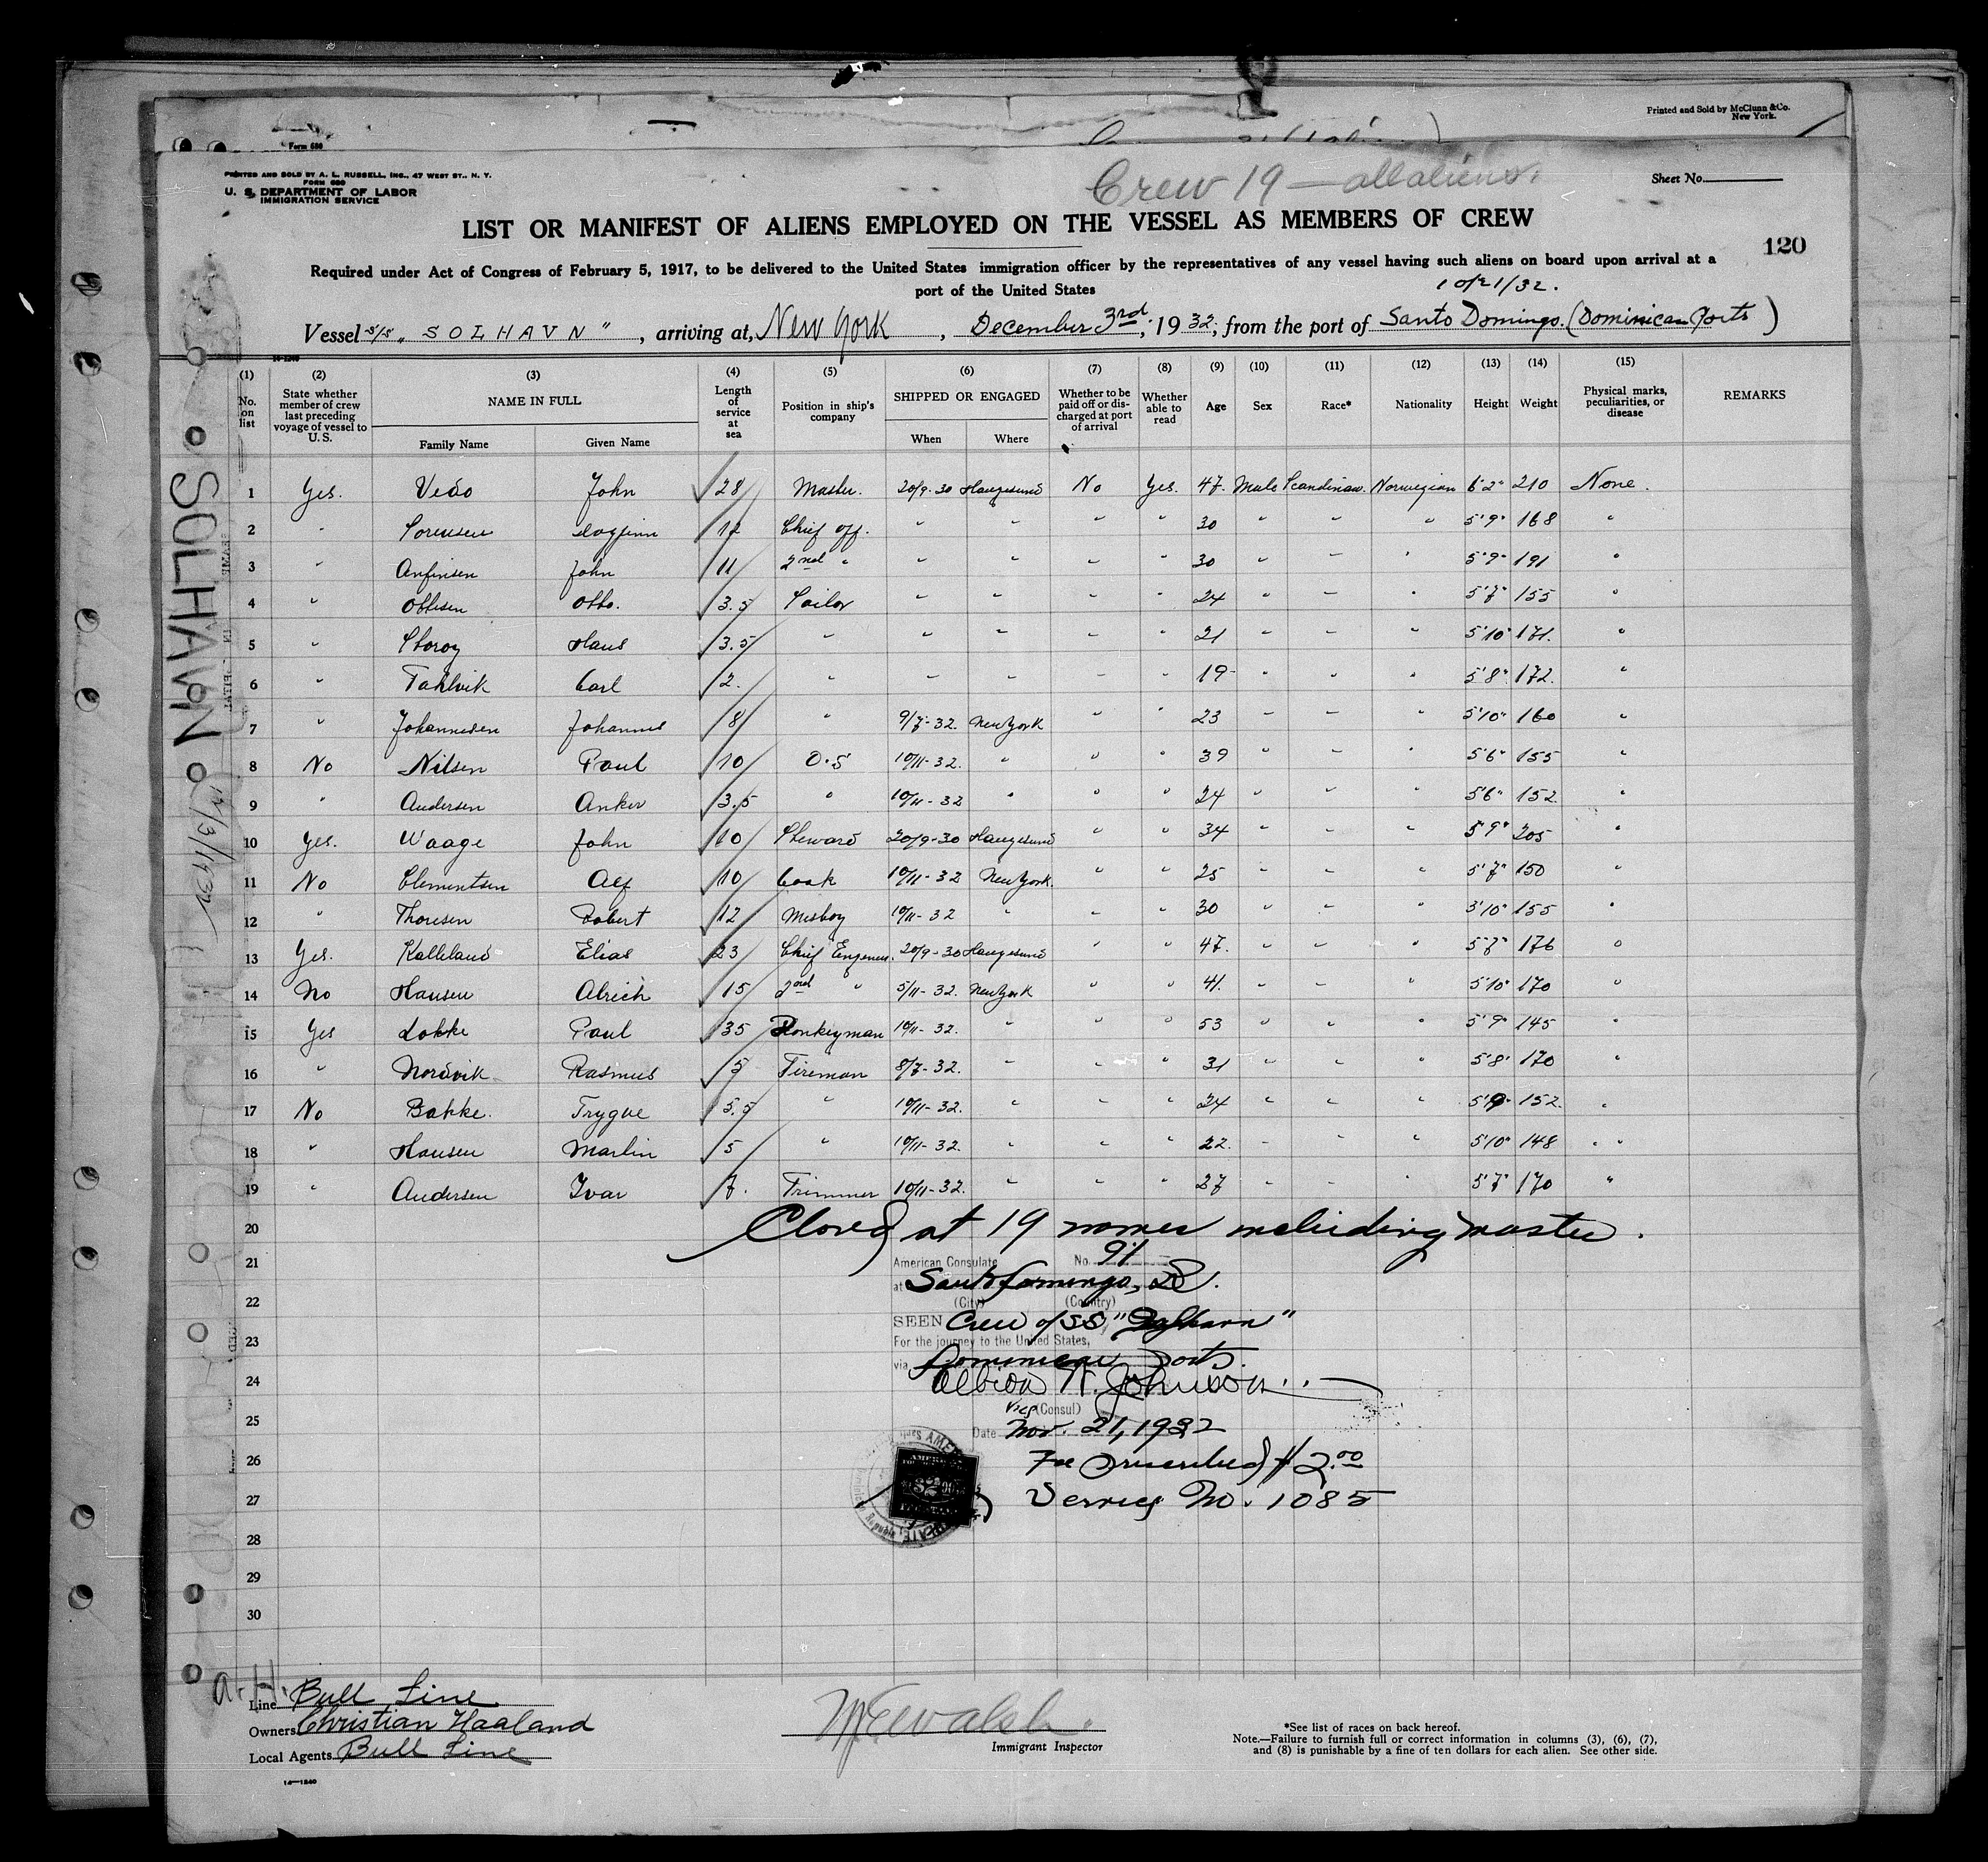 Printed and Sold by McClunn & Co.
New York.
Form 680
PRINTED AND SOLD BY A. L. RUSSELL, INC., 47 WEST ST., N. Y.
FORM 680
U. S. DEPARTMENT OF LABOR
IMMIGRATION SERVICE
Crew 19 — all aliens.
Sheet No.
LIST OR MANIFEST OF ALIENS EMPLOYED ON THE VESSEL AS MEMBERS OF CREW
120
Required under Act of Congress of February 5, 1917, to be delivered to the United States immigration officer by the representatives of any vessel having such aliens on board upon arrival at a
port of the United States
10/21/32.
Vessel S/S "SOLHAVN", arriving at, New York, December 3rd, 1932, from the port of Santo Domingo. (Dominican Ports)
14-1240
(1) No. on list (2) State whether member of crew last preceding voyage of vessel to U. S. (3) NAME IN FULL Family Name Given Name (4) Length of service at sea (5) Position in ship's company (6) SHIPPED OR ENGAGED When Where (7) Whether to be paid off or discharged at port of arrival (8) Whether able to read (9) Age (10) Sex (11) Race* (12) Nationality (13) Height (14) Weight (15) Physical marks, peculiarities, or disease REMARKS
1 Yes. Vedo John 28 Master. 20/9-30 Haugesund No Yes. 47. Male Scandinav. Norwegian 6'2" 210 None.
2 " Sorensen Dagfinn 12 Chief off. " " " " 30 " " " 5'9" 168 "
3 " Anfinsen John 11 2nd " " " " 30 " " " 5'9" 191 "
4 " Ottisen Otto. 3.5 Sailor " " " " 24 " " " 5'7" 155 "
5 " Storoy Hans 3.5 " " " " " 21 " " " 5'10" 171. "
6 " Tahlvik Carl 2. " " " " " 19 " " " 5'8" 172. "
7 " Johannesen Johannes 8 " 9/7-32. New York " " 23 " " " 5'10" 160 "
8 No Nilsen Paul 10 O.S 10/11-32. " " " 39 " " " 5'6" 155 "
9 " Andersen Anker 3.5 " 10/11-32 " " " 24 " " " 5'6" 152. "
10 Yes. Waage John 10 Steward 20/9-30 Haugesund " " 34 " " " 5'9" 205 "
11 No Clementsen Alf 10 Cook 10/11-32 New York. " " 25 " " " 5'7" 150 "
12 " Thoresen Robert 12 Mesboy 10/11-32 " " " 30 " " " 5'10" 155 "
13 Yes. Kalleland Elias 23 Chief Engeneer. 20/9-30 Haugesund " " 47. " " " 5'7" 176 "
14 No Hansen Alrich 15 2nd " 5/11-32. New York " " 41. " " " 5'10" 170 "
15 Yes Lokke Paul 35 Donkeyman 10/11-32. " " " 53 " " " 5'9" 145 "
16 " Nordvik Rasmus 5 Fireman 8/7-32. " " " 31 " " " 5'8" 170 "
17 No Bakke. Trygve 5.5 " 10/11-32. " " " 24 " " " 5'9" 152. "
18 " Hansen Martin 5 " 10/11-32. " " " 22. " " " 5'10" 148 " "
19 " Andersen Ivar 7. Trimmer 10/11-32. " " " 27 " " " 5'7" 170 "
20 Closed at 19 names including master.
21 American Consulate No. 91
at Santo Domingo, D.R.
22 (City) (Country)
SEEN Crew of SS "Solhavn"
23 For the journey to the United States,
via Dominican Ports.
24 Albion W. Johnson
Vice (Consul)
25 Date Nov. 21, 1932
26 Fee prescribed $2.00
27 Service No. 1085
28
29
30
SOLHAVN
12/3/1932
A. H.
Line Bull Line
Owners Christian Haaland
Local Agents Bull Line
14—1240
W. E. Walsh.
Immigrant Inspector
*See list of races on back hereof.
Note.—Failure to furnish full or correct information in columns (3), (6), (7),
and (8) is punishable by a fine of ten dollars for each alien. See other side.